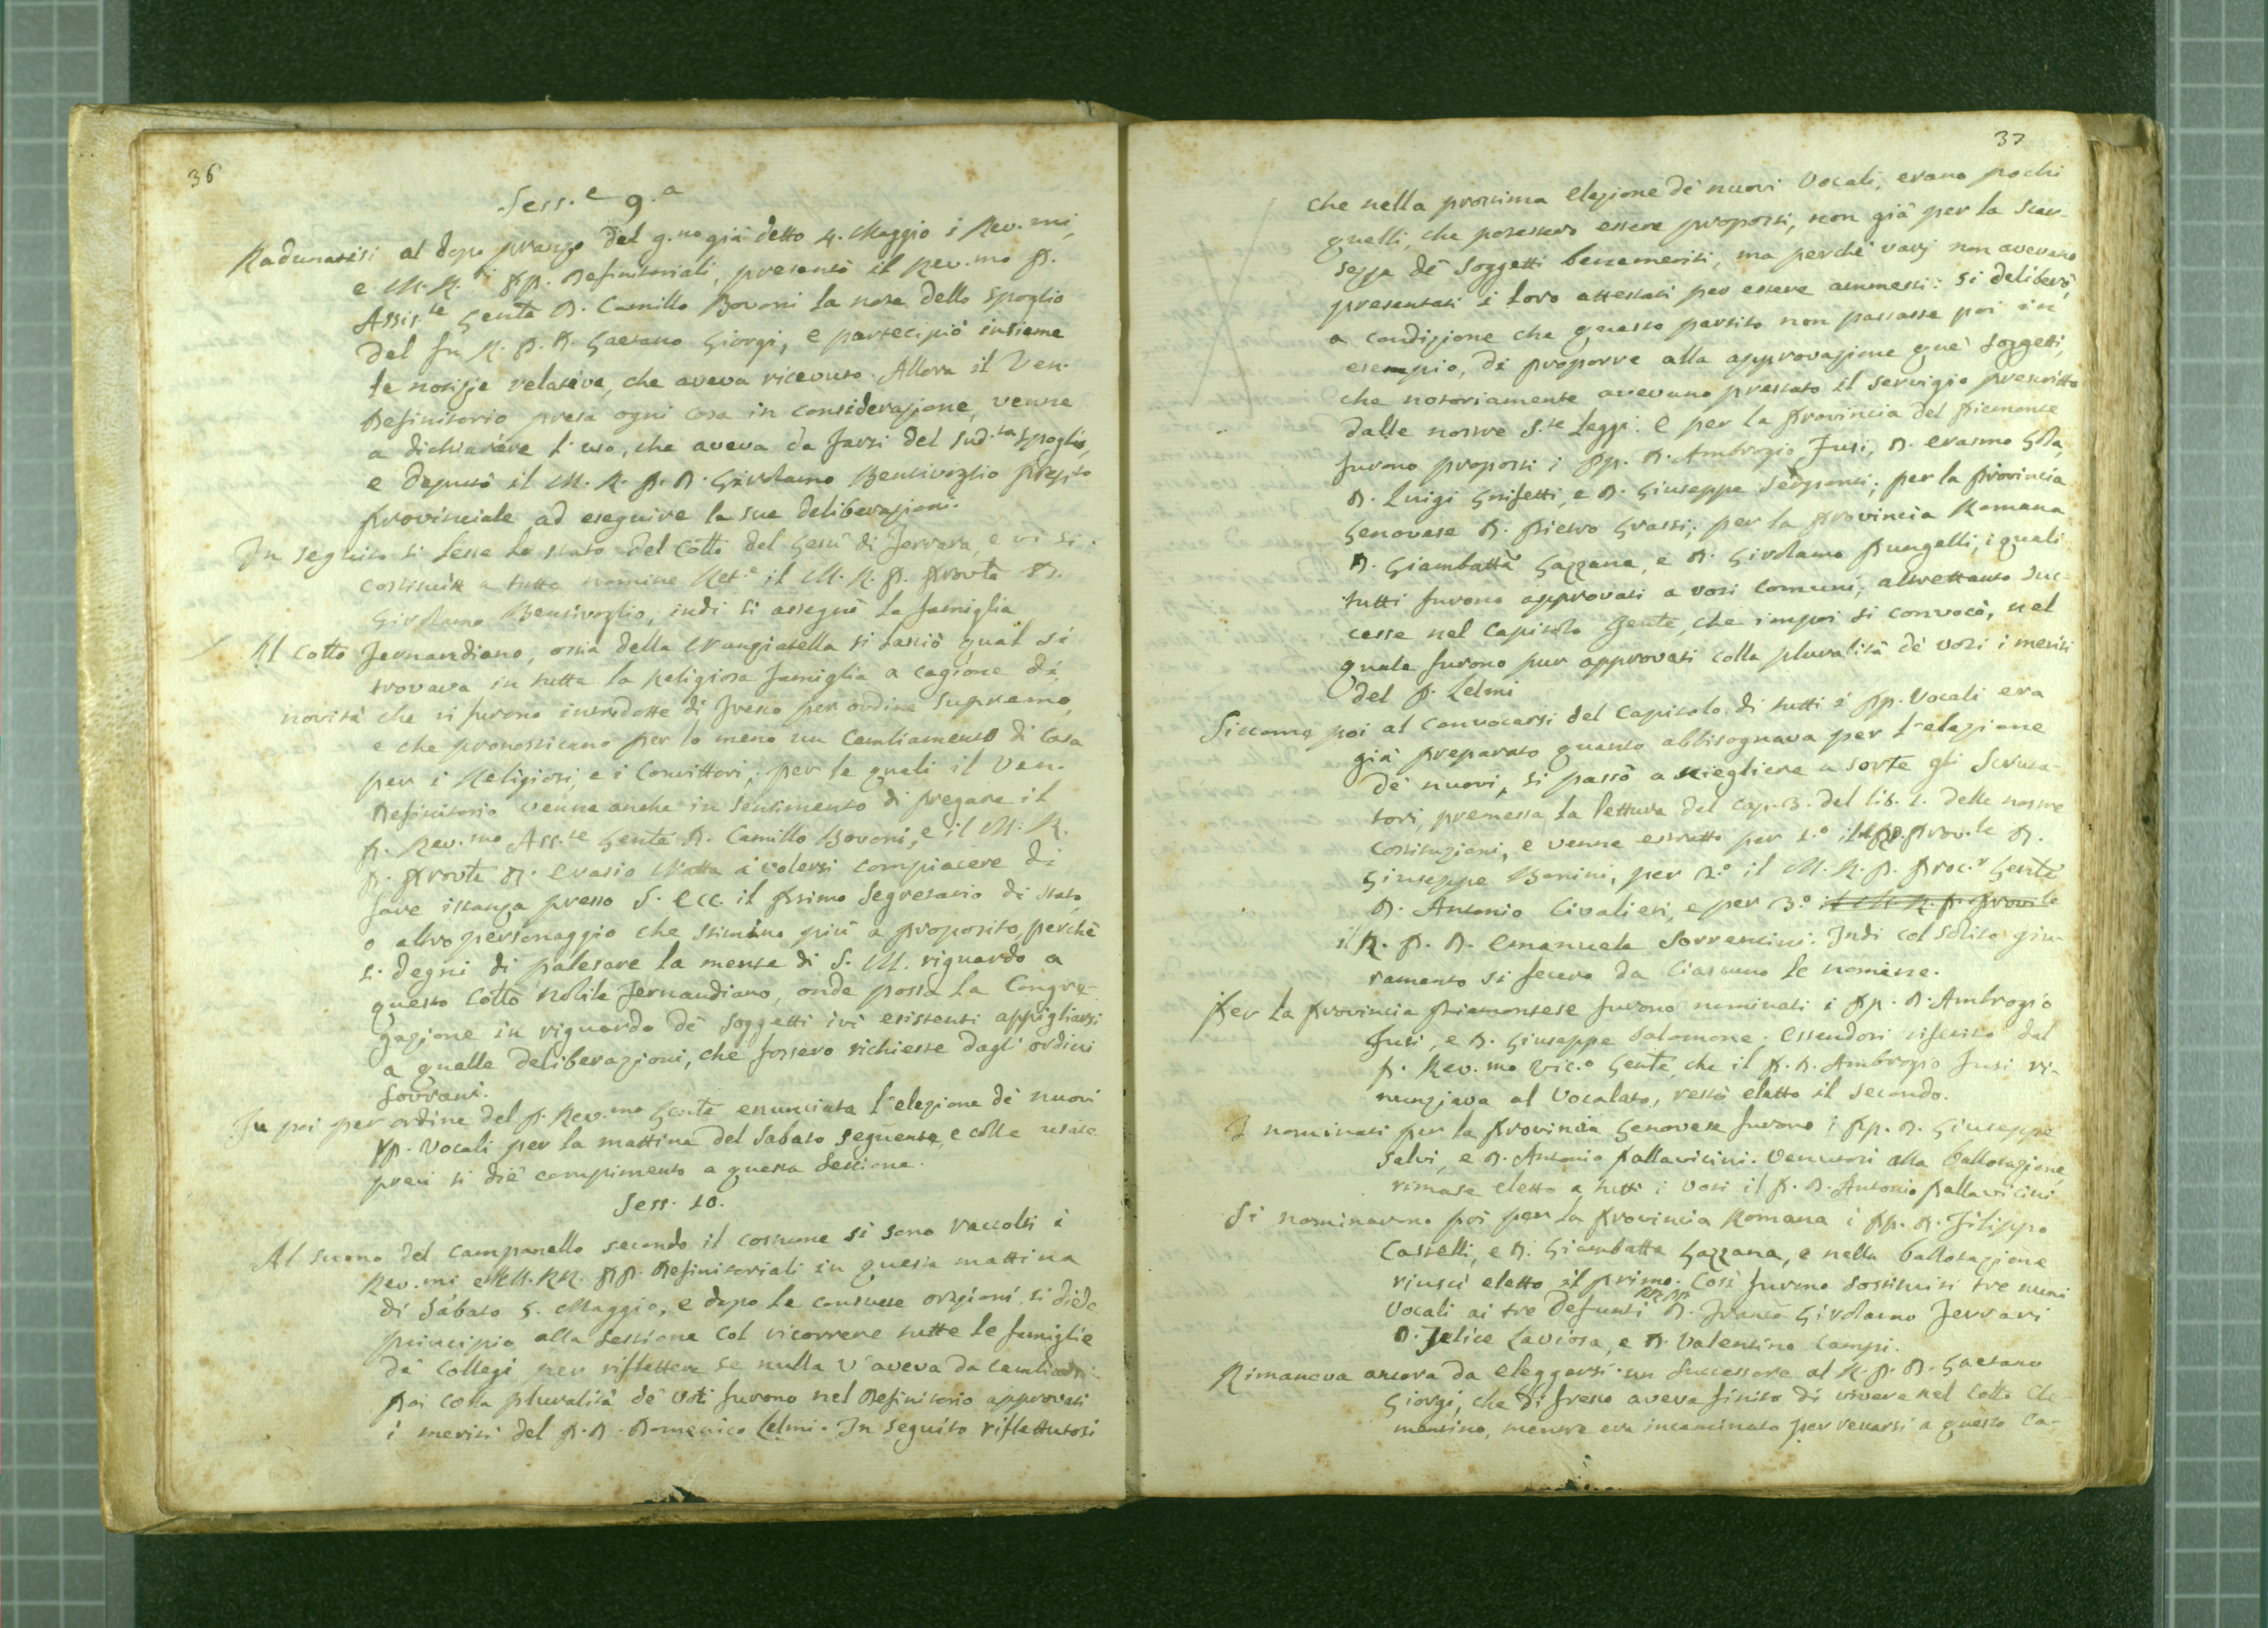 36
Sess.e 9.a
Radunatisi al dopo pranzo del g.no già detto 4. Maggio i Rev.mi,
e M. R.i PP. Definitoriali, presentò il Rev.mo P.
Assis.te Gen̄le D. Camillo Bovoni la nota dello Spoglio
del fu R. P. D. Gaetano Giorgi, e partecipiò insieme
le notizie relative, che aveva ricevuto. Allora il Ven.
Definitorio presa ogni cosa in considerazione, venne
a dichiarare l'uso, che aveva da farsi del sud.to Spoglio,
e deputò il M. R. P. D. Girolamo Bentivoglio Prep.to
Provinciale ad eseguire la sua deliberazione.
In seguito si lesse lo stato del Coll̄o del Gesù di Ferrara, e vi si
costituì a tutto nomine Ret.e il M. R. P. Prov̄le D.
Girolamo Bentivoglio, indi si assegnò la famiglia
Al Coll̄o Fernandiano, ossia della Nunziatella si lasciò qual si
trovava in tutta la Religiosa famiglia a cagione di
novità che vi furono introdotte di fresco per ordine Supremo,
e che pronosticano per lo meno un Cambiamento di Casa
per i Religiosi, e i Convittori, per le quali il Ven.
Definitorio venne anche in sentimento di pregare il
P. Rev.mo Ass.te Gen̄le D. Camillo Bovoni, e il M. R.
P. Prov̄le D. Evasio Natta a volersi compiacere di
fare istanza presso S. Ecc. il Primo Segretario di Stato
o altro personaggio che stimino più a proposito, perchè
si degni di palesare la mente di S. M. riguardo a
questo Coll̄o Nobile Fernandiano, onde possa la Congre-
gazione in riguardo de' Soggetti ivi esistenti appigliarsi
a quelle deliberazioni, che fossero richieste dagli ordini
Sovrani.
Fu poi per ordine del P. Rev.mo Gen̄le enunciata l'elezione de' nuovi
PP. Vocali per la mattina del Sabato seguente, e colle usate
preci si diè compimento a questa Sessione.
Sess. 10.
Al suono del campanello secondo il costume si sono raccolti i
Rev.mi e MM. RR. PP. Definitoriali in questa mattina
di Sabato 5. Maggio, e dopo le consuete orazioni si diede
principio alla Sessione col ricorrere tutte le famiglie
de' Collegi per riflettere se nulla v'aveva da cambiarsi.
Poi colla pluralità de' Voti furono nel Definitorio approvati
i meriti del P. D. Domenico Lelmi. In seguito riflettutosi
37
che nella prossima Elezione de' nuovi Vocali, erano pochi
quelli, che potessero essere proposti, non già per la scar-
sezza de' Soggetti benemeriti, ma perchè varj non avevano
presentati i loro attestati per essere ammessi: si deliberò,
a condizione che questo partito non passasse poi in
esempio, di proporre alla approvazione que' Soggetti,
che notoriamente avevano prestato il servigio prescritto
dalle nostre S.te Leggi. E per la Provincia del Piemonte
furono proposti i PP. D. Ambrogio Fusi, D. Erasmo Gola,
D. Luigi Grisetti, e D. Giuseppe; per la Provincia
Genovese D. Pietro Grassi; per la Provincia Romana
D. Giambatt̄a Gazzana, e D. Girolamo Pungelli, i quali
tutti furono approvati a voti comuni; altrettanto suc-
cesse nel Capitolo Gen̄le, che impoi si convocò, nel
quale furono pur approvati colla pluralità de' voti i meriti
del P. Lelmi
Siccome poi al convocarsi del Capitolo di tutti i PP. Vocali era
già preparato quanto abbisognava per l'elezione
de' nuovi, si passò a sciegliere a sorte gli Scruta-
tori, premessa la lettura del Cap. 3. del lib. 1. delle nostre
Costituzioni, e venne estratto per 1.o il M.R.P. Prov.le D.
Giuseppe Bonini, per 2.o il M. R. P. Proc.r Gen̄le
D. Antonio Civalieri, e per 3.o il M. R. P. Prov.le
il R. P. D. Emanuele Sorrentini. Indi col solito giu-
ramento si fecero da Ciascuno le nomine.
Per la Provincia Piemontese furono nominati i PP. D. Ambrogio
Fusi, e D. Giuseppe Salomone. Essendosi riferito dal
P. Rev.mo Vic.o Gen̄le, che il P. D. Ambrogio Fusi ri-
nunziava al Vocalato, restò eletto il secondo.
I nominati per la Provincia Genovese furono i PP. D. Giuseppe
Salvi, e D. Antonio Pallavicini. Venutosi alla ballotazione,
rimase eletto a tutti i voti il P. D. Antonio Pallavicini
Si nominarono poi per la Provincia Romana i PP. D. Filippo
Castelli, e D. Giambatt̄a Gazzana, e nella ballotazione
riuscì eletto il primo. Così furono sostituiti tre nuovi
Vocali ai tre Defunti RR. PP. D. Franc̄o Girolamo Ferrari
D. Felice Laviosa, e D. Valentino Campi.
Rimaneva ancora da eleggersi un Successore al R. P. D. Gaetano
Giorgi, che di fresco aveva finito di vivere nel Coll̄o Cle-
mentino, mentre era incaminato per recarsi a questo Ca-